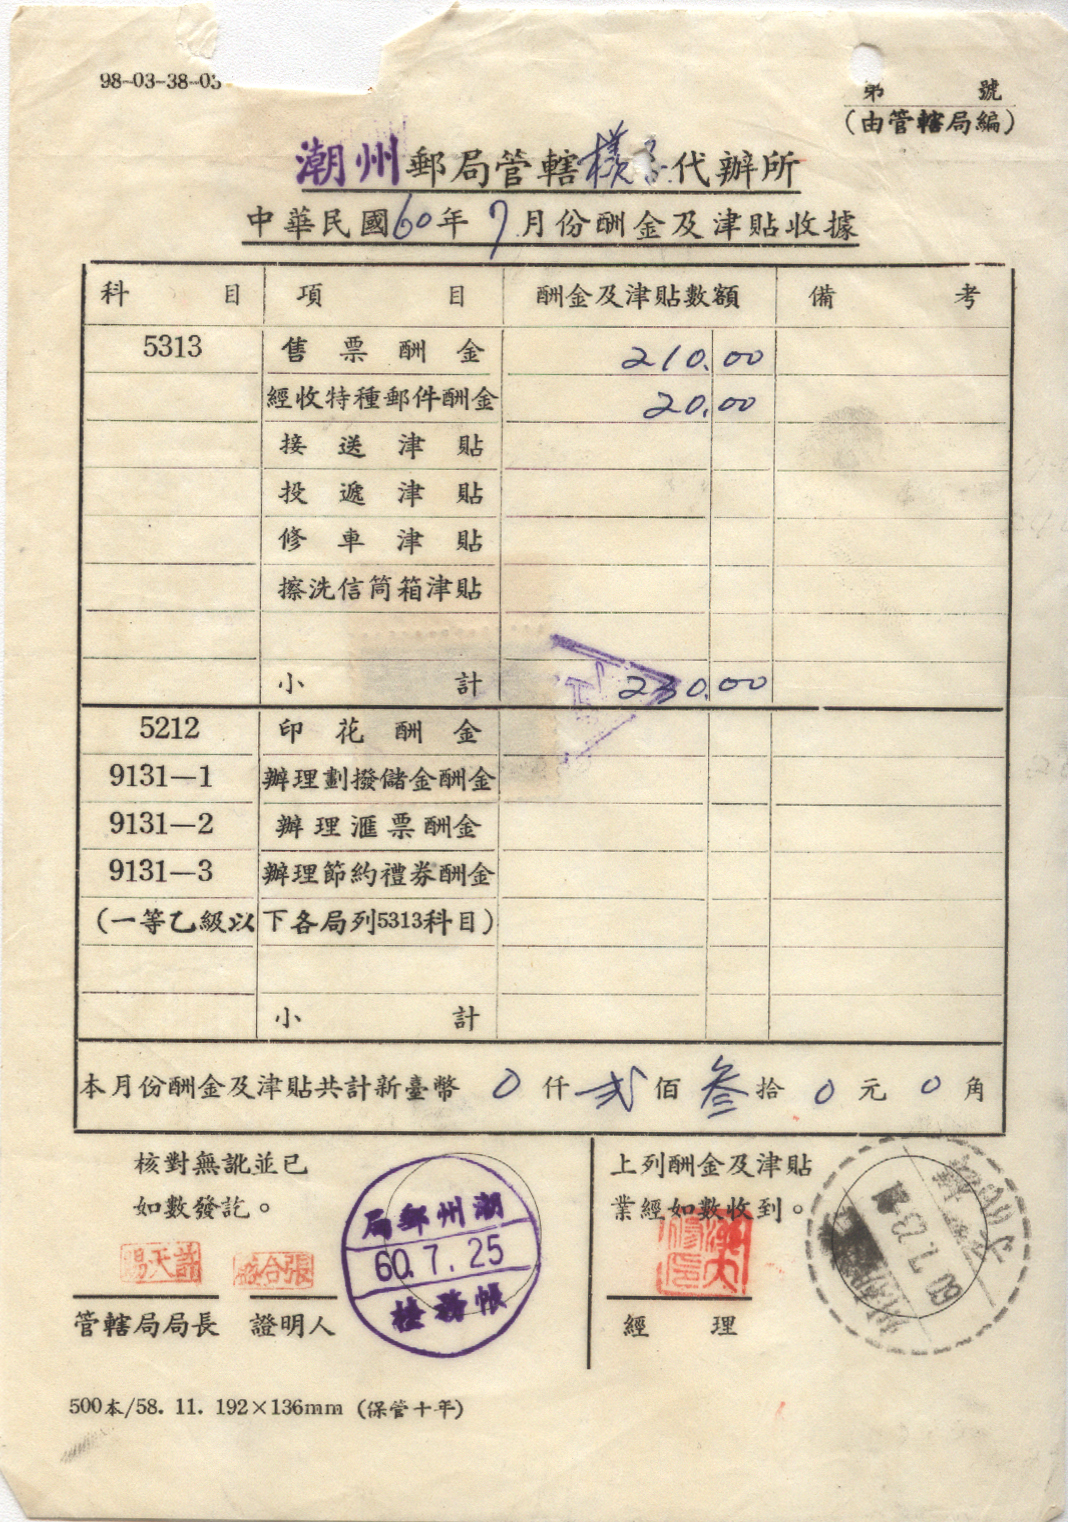 98-03-38-03
第 號
(由管轄局編)
潮州郵局管轄樣子代辦所
中華民國60年7月份酬金及津貼收據
科目 項目 酬金及津貼數額 備考
5313 售票酬金 210.00
經收特種郵件酬金 20.00
接送津貼
投遞津貼
修車津貼
擦洗信筒箱津貼
小計 230.00
5212 印花酬金
9131—1 辦理劃撥儲金酬金
9131—2 辦理滙票酬金
9131—3 辦理節約禮券酬金
(一等乙級以下各局列5313科目)
小計
本月份酬金及津貼共計新臺幣 0仟貳佰叁拾0元0角
核對無訛並已
如數發訖。
許天賜
管轄局局長 證明人
潮州郵局
60.7.25
帳務檯
上列酬金及津貼
業經如數收到。
經理
60.7.23
500本/58. 11. 192×136mm (保管十年)